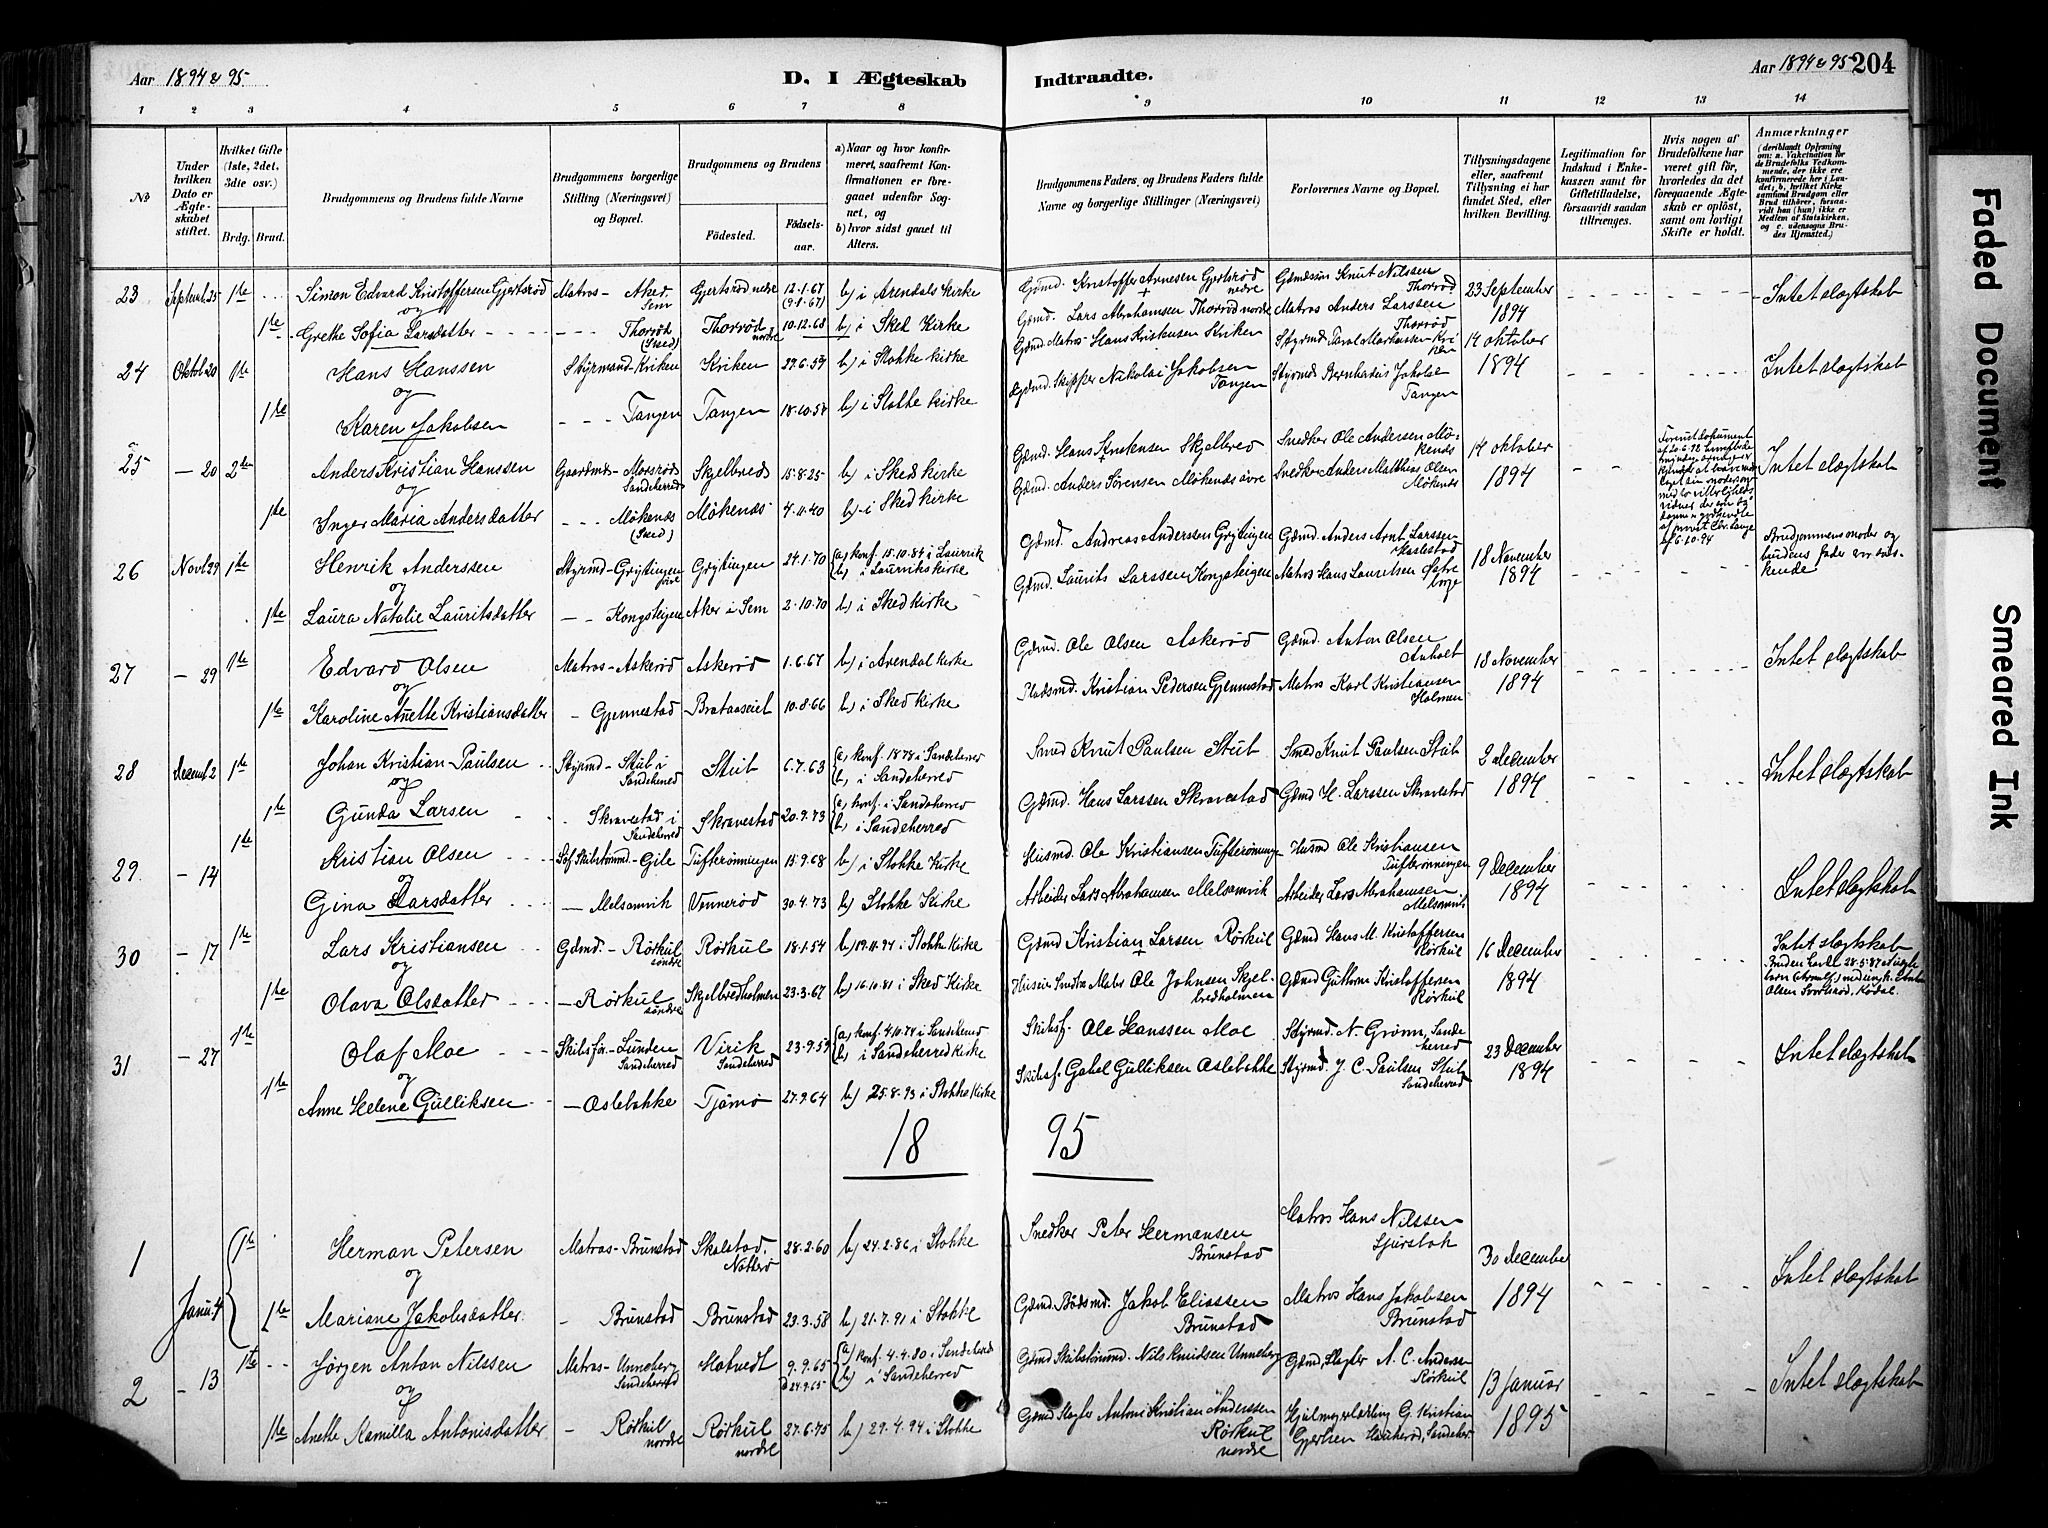 Aar 1894 & 95
D. I Ægteskab
Indtraadte.
Aar 1894 & 95 204
1 2 3 4 5 6 7 8 9 10 11 12 13 14
No
Under hvilken Dato er Ægteskabet stiftet.
Hvilket Gifte (1ste, 2det, 3die osv.)
Brdg. Brud.
Brudgommens og Brudens fulde Navne
Brudgommens borgerlige Stilling (Næringsvei) og Bopæl.
Brudgommens og Brudens
Fødested.
Fødselsaar.
a) Naar og hvor konfirmeret, saafremt Konfirmationen er foregaaet udenfor Sognet, og
b) hvor sidst gaaet til Alters.
Brudgommens Faders, og Brudens Faders fulde Navne og borgerlige Stillinger (Næringsvei)
Forlovernes Navne og Bopæl.
Tillysningsdagene eller, saafremt Tillysning ei har fundet Sted, efter hvilken Bevilling.
Legitimation for Indskud i Enkekassen samt for Giftetilladelse, forsaavidt saadan tiltrænges.
Hvis nogen af Brudefolkene har været gift før, hvorledes da det foregaaende Ægteskab er opløst, samt om lovligt Skifte er holdt.
Anmærkninger (deriblandt Oplysning om: a. Vakcination for de Brudefolks Vedkommende, der ikke ere konfirmerede her i Landet; b. hvilket Kirkesamfund Brudgom eller Brud tilhører, forsaavidt han (hun) ikke er Medlem af Statskirken, og c. udensogns Brudes Hjemsted.)
23 Septemb. 25 1ste Simon Edvard Kristoffersen Gjertsrød Matros - Aker Sem Gjertsrød nedre 12.1.67 (9.1.67) b) i Arendals Kirke Gdmd. Kristoffer Arnesen Gjertsrød nedre Gdmdssøn Knut Nilssen Thorrød 23 September 1894 Intet slægtskab
og
1ste Grethe Sofia Larsdatter Thorrød (Sked) Thorrød nordre 10.12.68 b) i Sked Kirke Gdmd. Lars Abrahamsen Thorrød nordre Matros Anders Larssen Thorrød
24 Oktob. 20 1ste Hans Hanssen Styrmand - Kriken Kriken 29.6.59 b) i Stokke Kirke Gdmd. Matros Hans Kristensen Kriken 14 Oktober 1894 Intet slægtskab
og
1ste Karen Jakobsen Tangen Tangen b) i Stokke Kirke Gdmd. Skipper Nikolai Jakobsen Tangen Styrmd Bernhardus Jakobsen Tangen
25 - 20 2den Anders Kristian Hanssen Gaardmd - Morsrød Sandeherred Skjelbred 15.8.25 b) i Sked Kirke Gdmd. Hans Kristensen Skjelbred Snedker Ole Andersen Møkenes 14 Oktober 1894 Intet slægtskab
og
1ste Inger Maria Andersdatter Møkenes (Sked) Møkenes 4.11.40 b) i Sked Kirke Gdmd. Anders Sørensen Møkenes øvre Snedker Anders Matthias Olsen Møkenes
26 Novb. 29 1ste Henrik Anderssen Styrmd - Grytingen Grytingen 24.1.70 a) konf. 15.10.84 i Laurvik b) i Laurviks kirke Gdmd. Andreas Andersen Grytingen Gdmd. Anders Larssen 18 November 1894 Brudgommens moder og brudens fader ere søskende
og
1ste Laura Natalie Lauritsdatter Kongsteigen Aker i Sem 2.10.70 b) i Sked Kirke Gdmd Laurits Larssen Kongsteigen Matros Hans Lauritsen
27 - 29 1ste Edvard Olsen Matros - Askerød Askerød 1.6.67 b) i Arendal Kirke Gdmd. Ole Olsen Askerød Gdmd. Anton Olsen Anholt 18 November 1894 Intet slægtskab
og
1ste Karoline Anette Kristiansdatter - Gjennestad Brataaseiet 10.8.66 b) i Sked Kirke Pladsmd. Kristian Pedersen Gjennestad Matros Karl Kristiansen Holmen
28 Decemb. 2 1ste Johan Kristian Paulsen Styrmd - Stub i Sandeherred Stub 6.7.63 a) konf. 1878 i Sandeherred b) i Sandeherred Smed Knut Paulsen Stub Smed Knut Paulsen Stub 2 December 1894 Intet slægtskab
og
1ste Gunda Larsen Skravestad i Sandeherred Skravestad 20.9.73 a) konf. i Sandeherred b) i Sandeherred Gdmd. Hans Larssen Skravestad Gdmd H. Larssen Skravestad
29 - 14 1ste Kristian Olsen Gile Tufterønningen 15.9.68 b) i Stokke Kirke Husmd. Ole Kristiansen Tufterønningen Husmd Ole Kristiansen Tufterønningen 9 December 1894 Intet slægtskab
og
Gina Larsdatter - Melsomvik Vennerød 30.4.73 b) Stokke Kirke Arbeider Lars Abrahamsen Melsomvik Arbeider Lars Abrahamsen Melsomvik
30 - 17 1ste Lars Kristiansen Gdmd. - Rørkul søndre Rørkul 18.1.54 b) 19.11.94 i Stokke Kirke Gdmd Kristian Larsen Rørkul Gdmd Hans M. Kristoffersen Rørkul 16 December 1894 Intet slægtskab
og
1ste Olava Olsdatter - Rørkul søndre Skjelbredholmen 23.3.67 b) 16.10.81 i Sked Kirke Ole Johnsen Skjelbredholmen Gdmd Guttorm Kristoffersen Rørkul
31 - 27 1ste Olaf Moe Skibsfør. - Lunden Sandeherred Virik Sandeherred a) konf. 4.10.74 i Sandeherred b) i Sandeherred Kirke Skibsf. Ole Hanssen Moe Styrmd. N. Grønn, Sandeherred 23 December 1894 Intet slægtskab
og
1ste Anne Helene Gulliksen - Oslebakke Tjømø 27.9.64 b) 25.8.93 i Stokke Kirke Skibsf. Gabel Gulliksen Oslebakke Styrmd. J. C. Paulsen Stub Sandeherred
18 95
1 Janu. 4 1ste Herman Petersen Matros - Brunstad Skalstad, Nøtterø 28.2.60 b) 24.2.86 i Stokke Snedker Peter Hermansen Brunstad Matros Hans Nilssen 30 December 1894 Intet slægtskab
og
1ste Mariane Jakobsdatter - Brunstad Brunstad 23.3.58 b) 21.7.91 i Stokke Gdmd. Bødsmd. Jakob Eliassen Brunstad Matros Hans Jakobsen Brunstad
2 - 13 1ste Jørgen Anton Nilssen Matros - Unneberg Sandeherred 9.9.65 d 24.9.65 a) konf. 4.4.80 i Sandeherred b) i Sandeherred Gdmd Skibstømmd. Nils Knudsen Unneberg Gdmd, Slagter A. C. Andersen Rørkul 13 Januar 1895 Intet slægtskab
og
1ste Anette Kamilla Antonisdatter - Rørkul nordre Rørkul nordre 27.6.75 b) 29.4.94 i Stokke Gdmd Slagter Antoni Kristian Anderssen Rørkul nordre G. Kristian Gjertsen Haukerød, Sandeher.
Faded Document
Smeared Ink